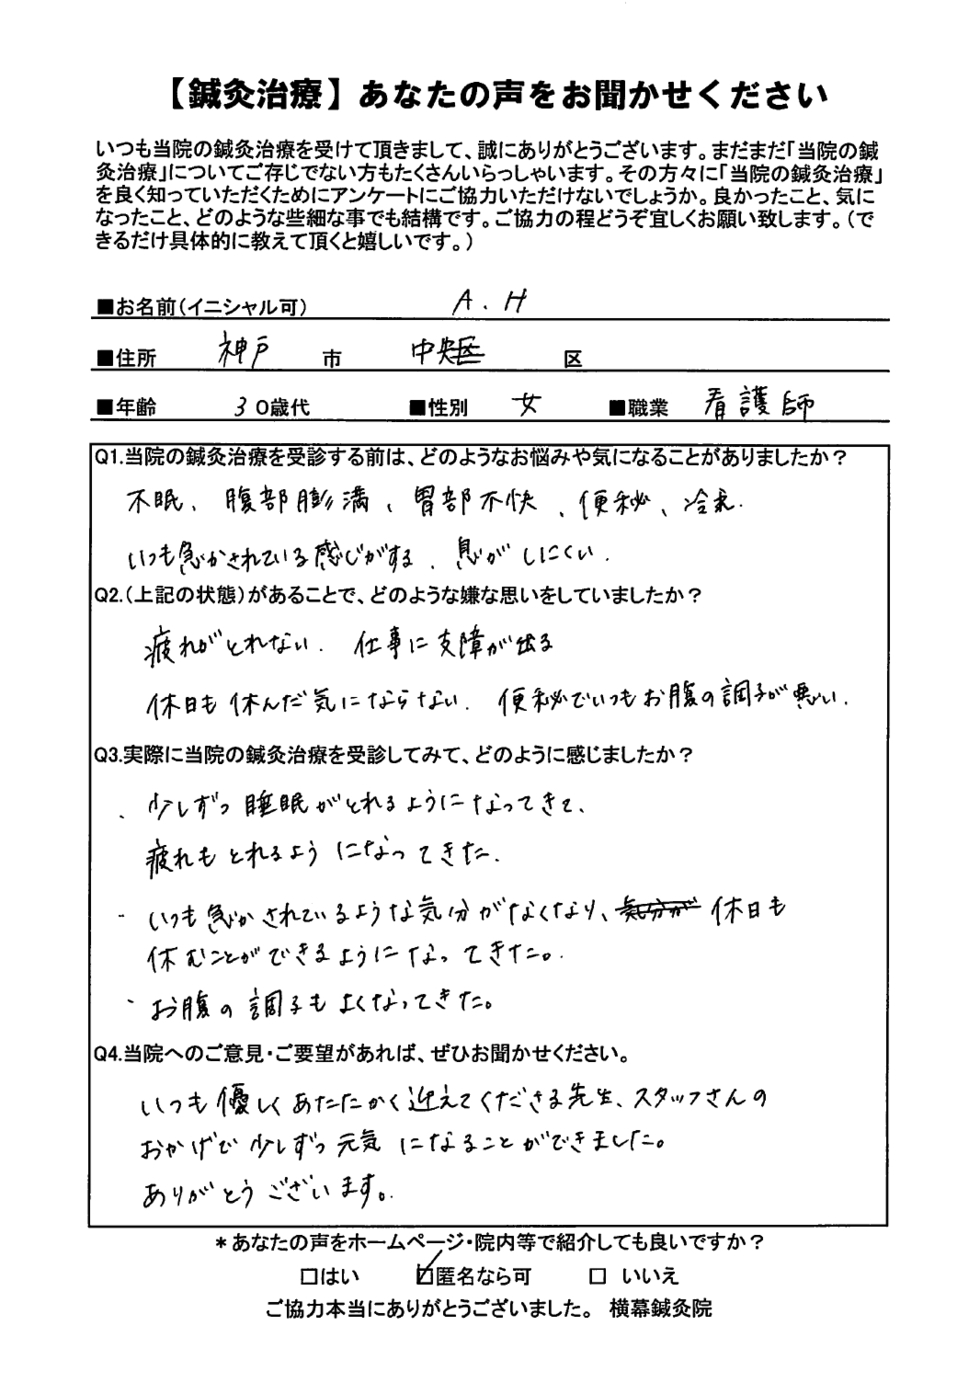 【鍼灸治療】あなたの声をお聞かせください
いつも当院の鍼灸治療を受けて頂きまして、誠にありがとうございます。まだまだ「当院の鍼
灸治療」についてご存じでない方もたくさんいらっしゃいます。その方々に「当院の鍼灸治療」
を良く知っていただくためにアンケートにご協力いただけないでしょうか。良かったこと、気に
なったこと、どのような些細な事でも結構です。ご協力の程どうぞ宜しくお願い致します。（で
きるだけ具体的に教えて頂くと嬉しいです。）
■お名前（イニシャル可） A.H
■住所 神戸 市 中央区 区
■年齢 30歳代 ■性別 女 ■職業 看護師
Q1.当院の鍼灸治療を受診する前は、どのようなお悩みや気になることがありましたか？
不眠、腹部膨満、胃部不快、便秘、冷え.
いつも急かされている感じがする.息がしにくい.
Q2.（上記の状態）があることで、どのような嫌な思いをしていましたか？
疲れがとれない. 仕事に支障が出る
休日も休んだ気にならない. 便秘でいつもお腹の調子が悪い.
Q3.実際に当院の鍼灸治療を受診してみて、どのように感じましたか？
・少しずつ睡眠がとれるようになってきて、
疲れもとれるようになってきた.
・いつも急かされているような気分がなくなり、気分が 休日も
休むことができるようになってきた。
・お腹の調子もよくなってきた。
Q4.当院へのご意見・ご要望があれば、ぜひお聞かせください。
いつも優しくあたたかく迎えてくださる先生、スタッフさんの
おかげで少しずつ元気になることができました。
ありがとうございます。
＊あなたの声をホームページ・院内等で紹介しても良いですか？
□はい ☑匿名なら可 □ いいえ
ご協力本当にありがとうございました。 横幕鍼灸院